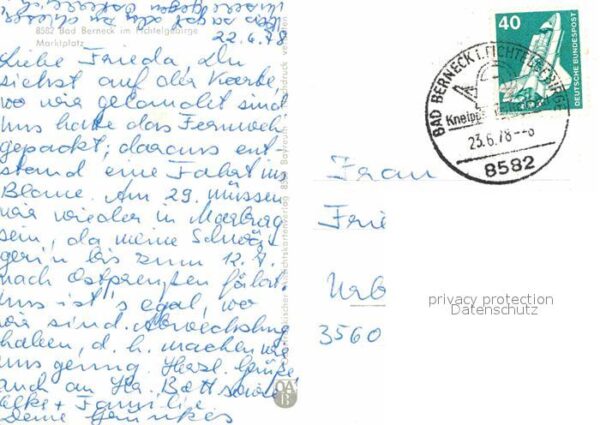 8582 Bad Berneck im Fichtelgebirge
Marktplatz
22.6.78
Liebe Frieda, Du
siehst auf der Karte,
wo wir gelandet sind
uns hatte das Fernweh
gepackt; daraus ent-
stand eine Fahrt ins
Blaue. Am 29. müssen
wir wieder in Marburg
sein, da meine Schwä-
gerin bis zum 12.7.
nach Ostpreußen fährt.
uns ist's egal, wo
wir sind. Abwechslung
haben, d. h. machen wir
uns genug. Herzl. Grüße
auch an
+ Familie
Deine
40
DEUTSCHE BUNDESPOST
BAD BERNECK I. FICHTELGEBIRGE
Kneipp
23.6.78--8
8582
Frau
Frie
Urb
3560
privacy protection
Datenschutz